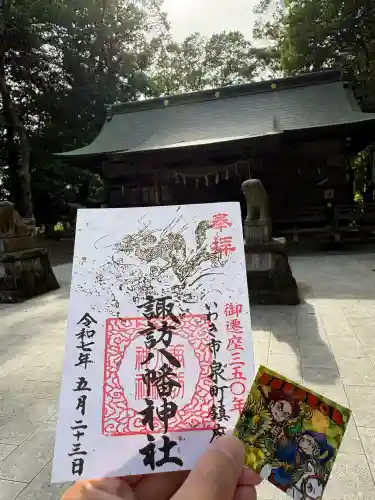 奉拝
御遷座三五〇年
いわき市泉町鎮座
諏訪八幡神社
令和七年五月二十三日